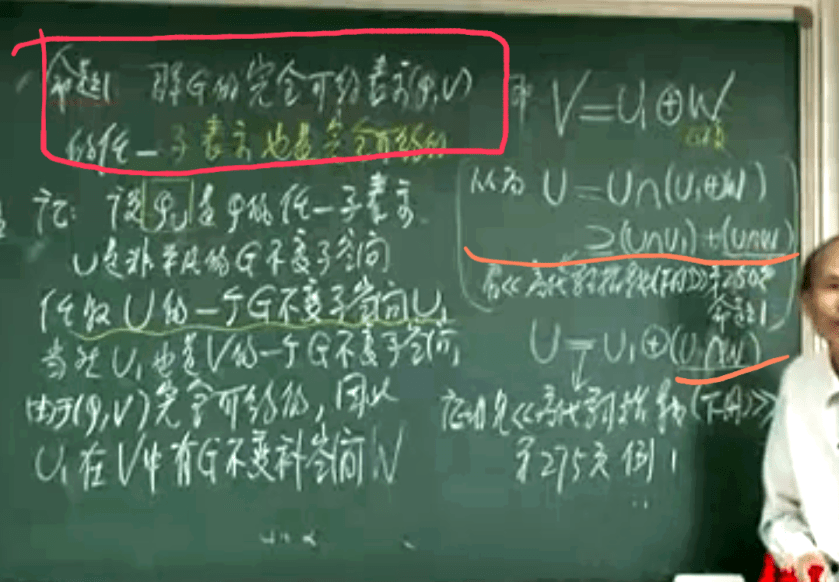 命题1 群G的完全可约表示(φ,V)
的任一子表示也是完全可约的
证: 设φ_U是φ的任一子表示.
U是非平凡的G不变子空间
任取U的一个G不变子空间U₁
当然U₁也是V的一个G不变子空间,
由于(φ,V)完全可约的,因此
U₁在V中有G不变补空间W
即 V=U₁⊕W
从而 U=U∩(U₁⊕W)
⊇(U∩U₁)+(U∩W)
看《高代创指教(下册)》第
命题1
U=U₁⊕(U∩W)
证明见《高代创指教(下册)》
第275页例1